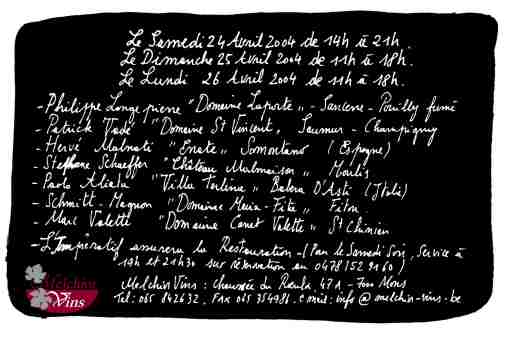 Le Samedi 24 Avril 2004 de 14h à 21h.
Le Dimanche 25 Avril 2004 de 11h à 18h.
Le Lundi 26 Avril 2004 de 11h à 18h.
- Philippe Longepierre "Domaine Laporte" - Sancerre - Pouilly fumé
- Patrick Vadé "Domaine St Vincent, Saumur - Champigny
- Hervé Malnati "Enate" Somontano (Espagne)
- Stephane Schaeffer "Château Malmaison" Moulis
- Paolo Alieta "Villa Terlina" Barbera D'Asti (Italie)
- Schmitt - Magnon "Domaine Maria - Fita" Fitou
- Marc Valette "Domaine Canet Valette" St Chinian
- L'Impératif assurera la Restauration - (Pas le Samedi Soir, Service à
19h et 21h30 sur réservation au 0478/52 91 60)
Melchior Vins : chaussée du Roeulx 471 - 7000 Mons
Tel: 065 842632. Fax 065 354986. e mail: info@melchior-vins.be
Melchior
Vins